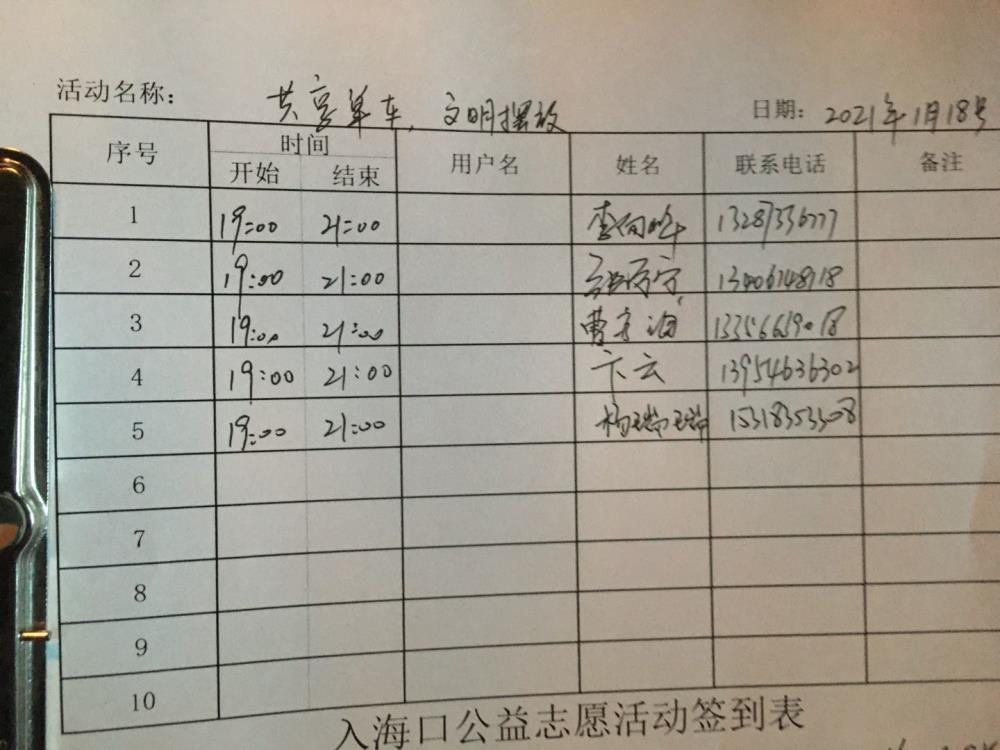 活动名称： 共享单车，文明摆放 日期： 2021年1月18号
序号 时间 用户名 姓名 联系电话 备注
开始 结束
1 19:00 21:00 李向峰
2 19:00 21:00
3 19:00 21:00 曹 13356659018
4 19:00 21:00 卞云 13954636302
5 19:00 21:00 杨瑞瑞 15318353308
6
7
8
9
10
入海口公益志愿活动签到表